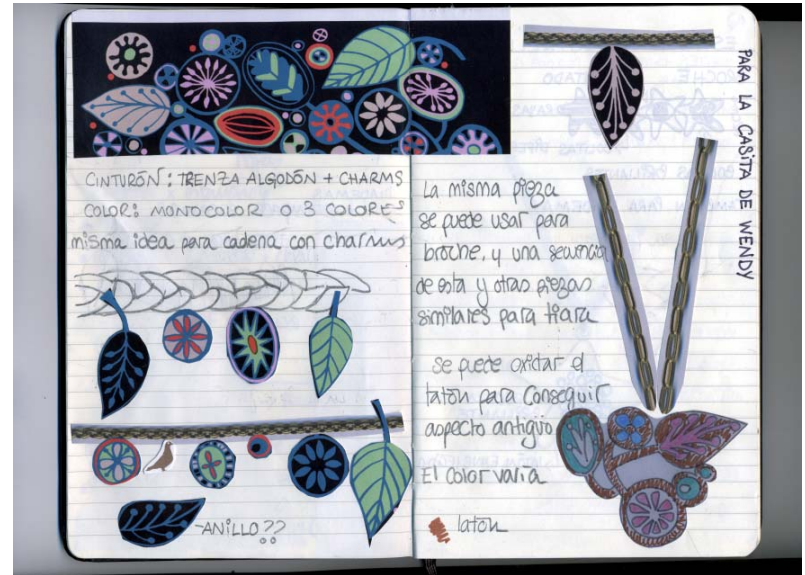 CINTURÓN: TRENZA ALGODÓN + CHARMS
COLOR: MONOCOLOR O 3 COLORES
misma idea para cadena con charms
-ANILLO??
PARA LA CASITA DE WENDY
La misma pieza
se puede usar para
broche, y una secuencia
de esta y otras piezas
similares para tiara
se puede oxidar el
latón para conseguir
aspecto antigüo
El color varía
latón